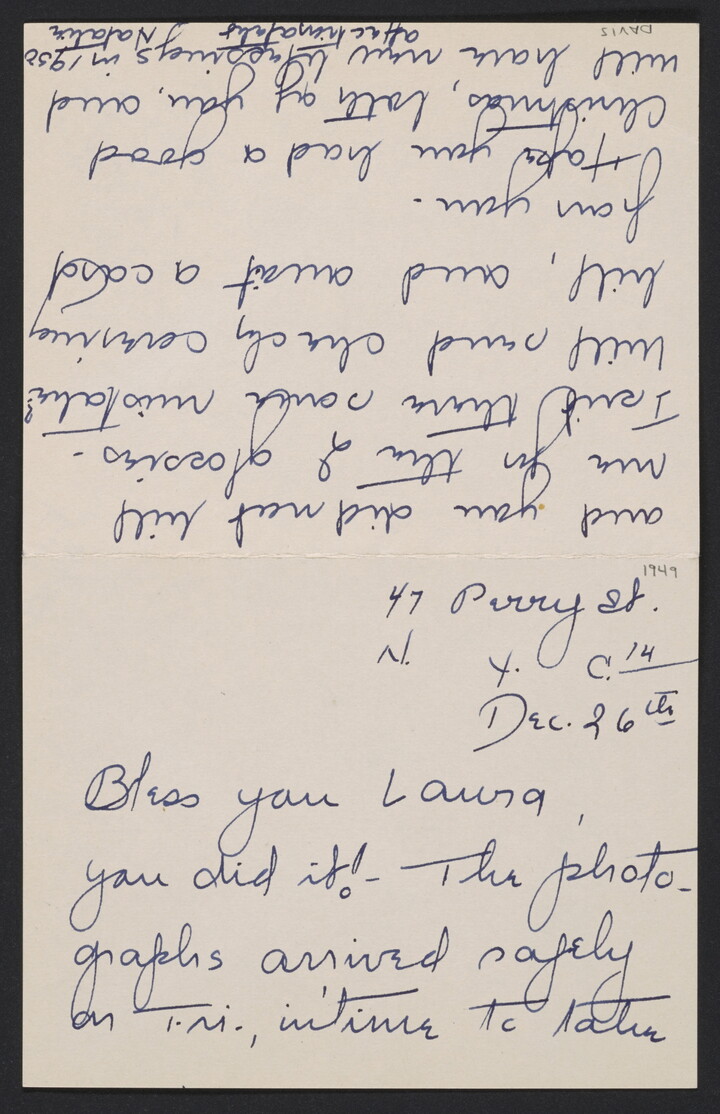 1949
47 Perry St.
N. Y. C. 14
Dec. 26th
Bless you Laura,
you did it! - The photo-
graphs arrived safely
on Fri., in time to take
and you did not bill
me for the 2 glossies -
Isn't there some mistake?
Will send check covering
bill, and await a card
from you.
Hope you had a good
Christmas, both of you, and
will have new blessings in 1950
affectionately
Natalie
DAVIS